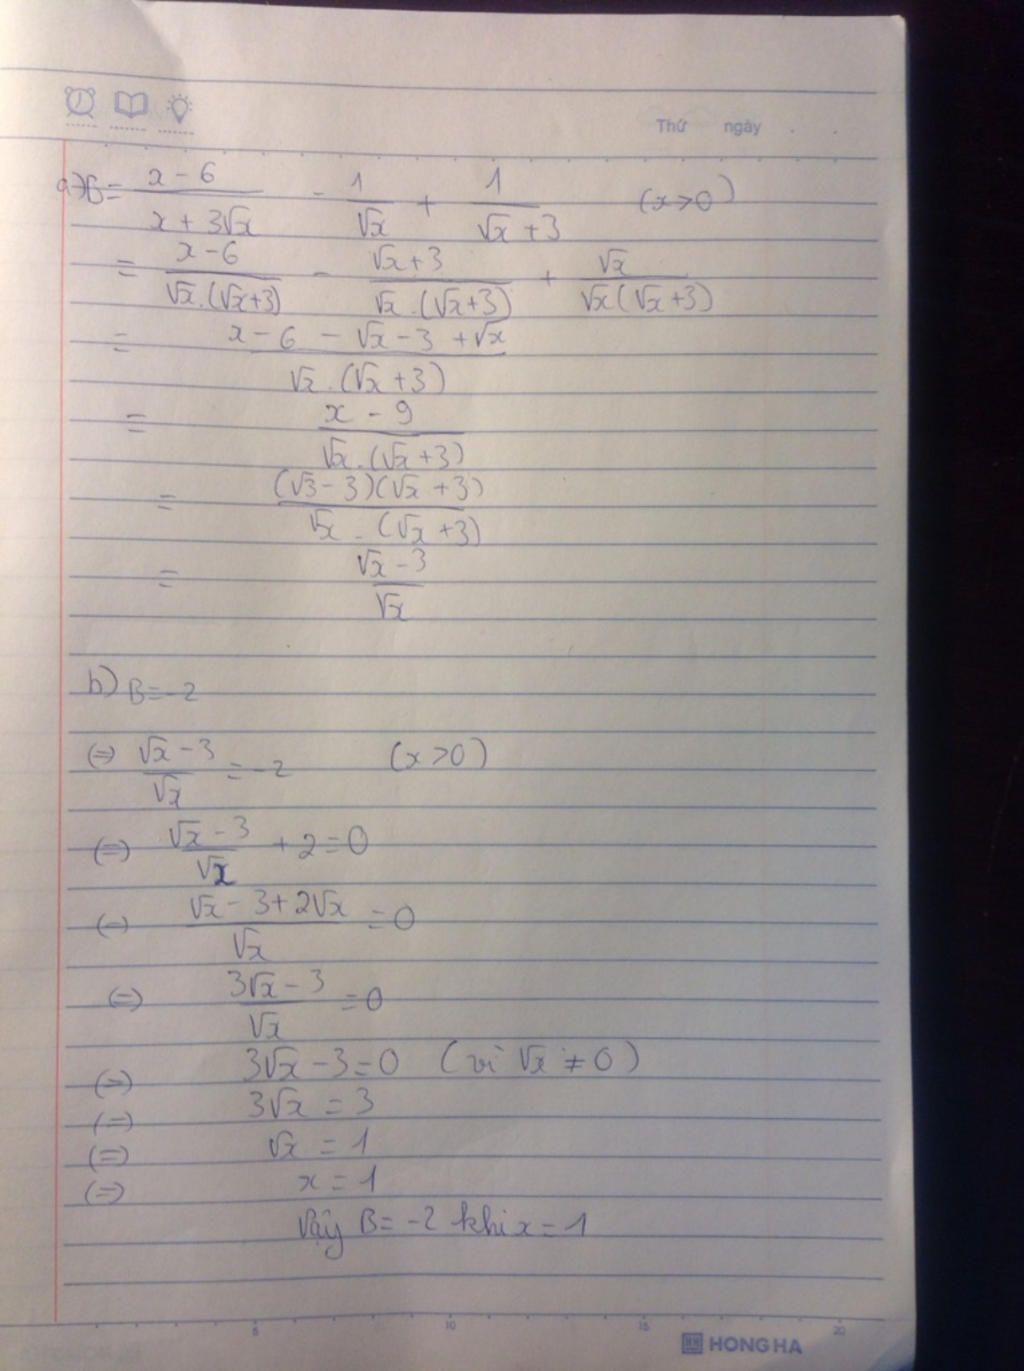 Thứ ngày
a) B = \frac{x - 6}{x + 3√x} - \frac{1}{√x} + \frac{1}{√x + 3} (x > 0)
= \frac{x - 6}{√x . (√x + 3)} - \frac{√x + 3}{√x . (√x + 3)} + \frac{√x}{√x (√x + 3)}
= \frac{x - 6 - √x - 3 + √x}{√x . (√x + 3)}
= \frac{x - 9}{√x . (√x + 3)}
= \frac{(√3 - 3)(√x + 3)}{√x . (√x + 3)}
= \frac{√x - 3}{√x}
b) B = -2
(=) \frac{√x - 3}{√x} = -2 (x > 0)
(=) \frac{√x - 3}{√x} + 2 = 0
(=) \frac{√x - 3 + 2√x}{√x} = 0
(=) \frac{3√x - 3}{√x} = 0
(=) 3√x - 3 = 0 (vì √x ≠ 0)
(=) 3√x = 3
(=) √x = 1
(=) x = 1
Vậy B = -2 khi x = 1
5 10 15 20
HONG HA